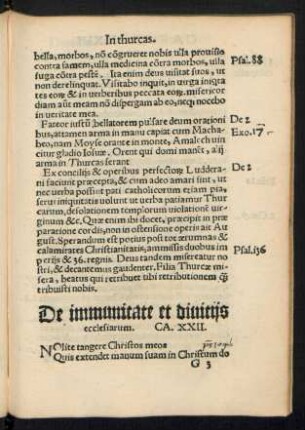 In thurcas.
bella, morbos, nō cōgrueret nobis vlla prouisio
contra famem, vlla medicina cōtra morbos, vlla
fuga cōtra pestē. Ita enim deus visitat suos, vt
non derelinquat. Visitabo inquit, in virga iniqui
tates eorū & in verberibus peccata eorū, misericor
diam aūt meam nō dispergam ab eo, neqȝ nocebo
in veritate mea.
Psal. 88
Fateor iustū bellatorem pulsare deum orationi
bus, attamen arma in manu capiat cum Machab
beo, nam Moyse orante in monte, Amalech vin
citur gladio Iosue. Orent qui domi manēt, alij
arma in Thurcas ferant
De 2
Exo. 17
Ex concilijs & operibus perfectorū Ludderani
faciunt præcepta, & cum adeo amari sint, vt
nec verba possint pati catholicorum etiam pia,
De 2
seruȝ iniquitatis volunt vt verba patiamur Thur
carum, desolationem templorum violationē virginum
&c. Quæ enim ibi docet, præcipit in præ
paratione cordis, non in ostensione operis ait Au
gust. Sperandum est potius post tot ærumnas &
calamitates Christianitatis, amissis duobus im
perijs & 36. regnis. Deus tandem miserebitur no
stri, & decantemus gaudenter, Filia Thurcæ
misera, beatus qui retribuet tibi retributionem quā
tribuisti nobis.
Psal. 136
De immunitate et diuitijs
ecclesiarum. CA. XXII.
NOlite tangere Christos meos
Quis extendet manum suam in Christum do
G 3